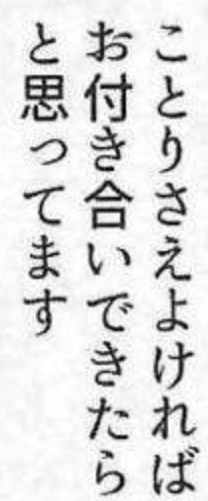 ことりさえよければ
お付き合いできたら
と思ってます